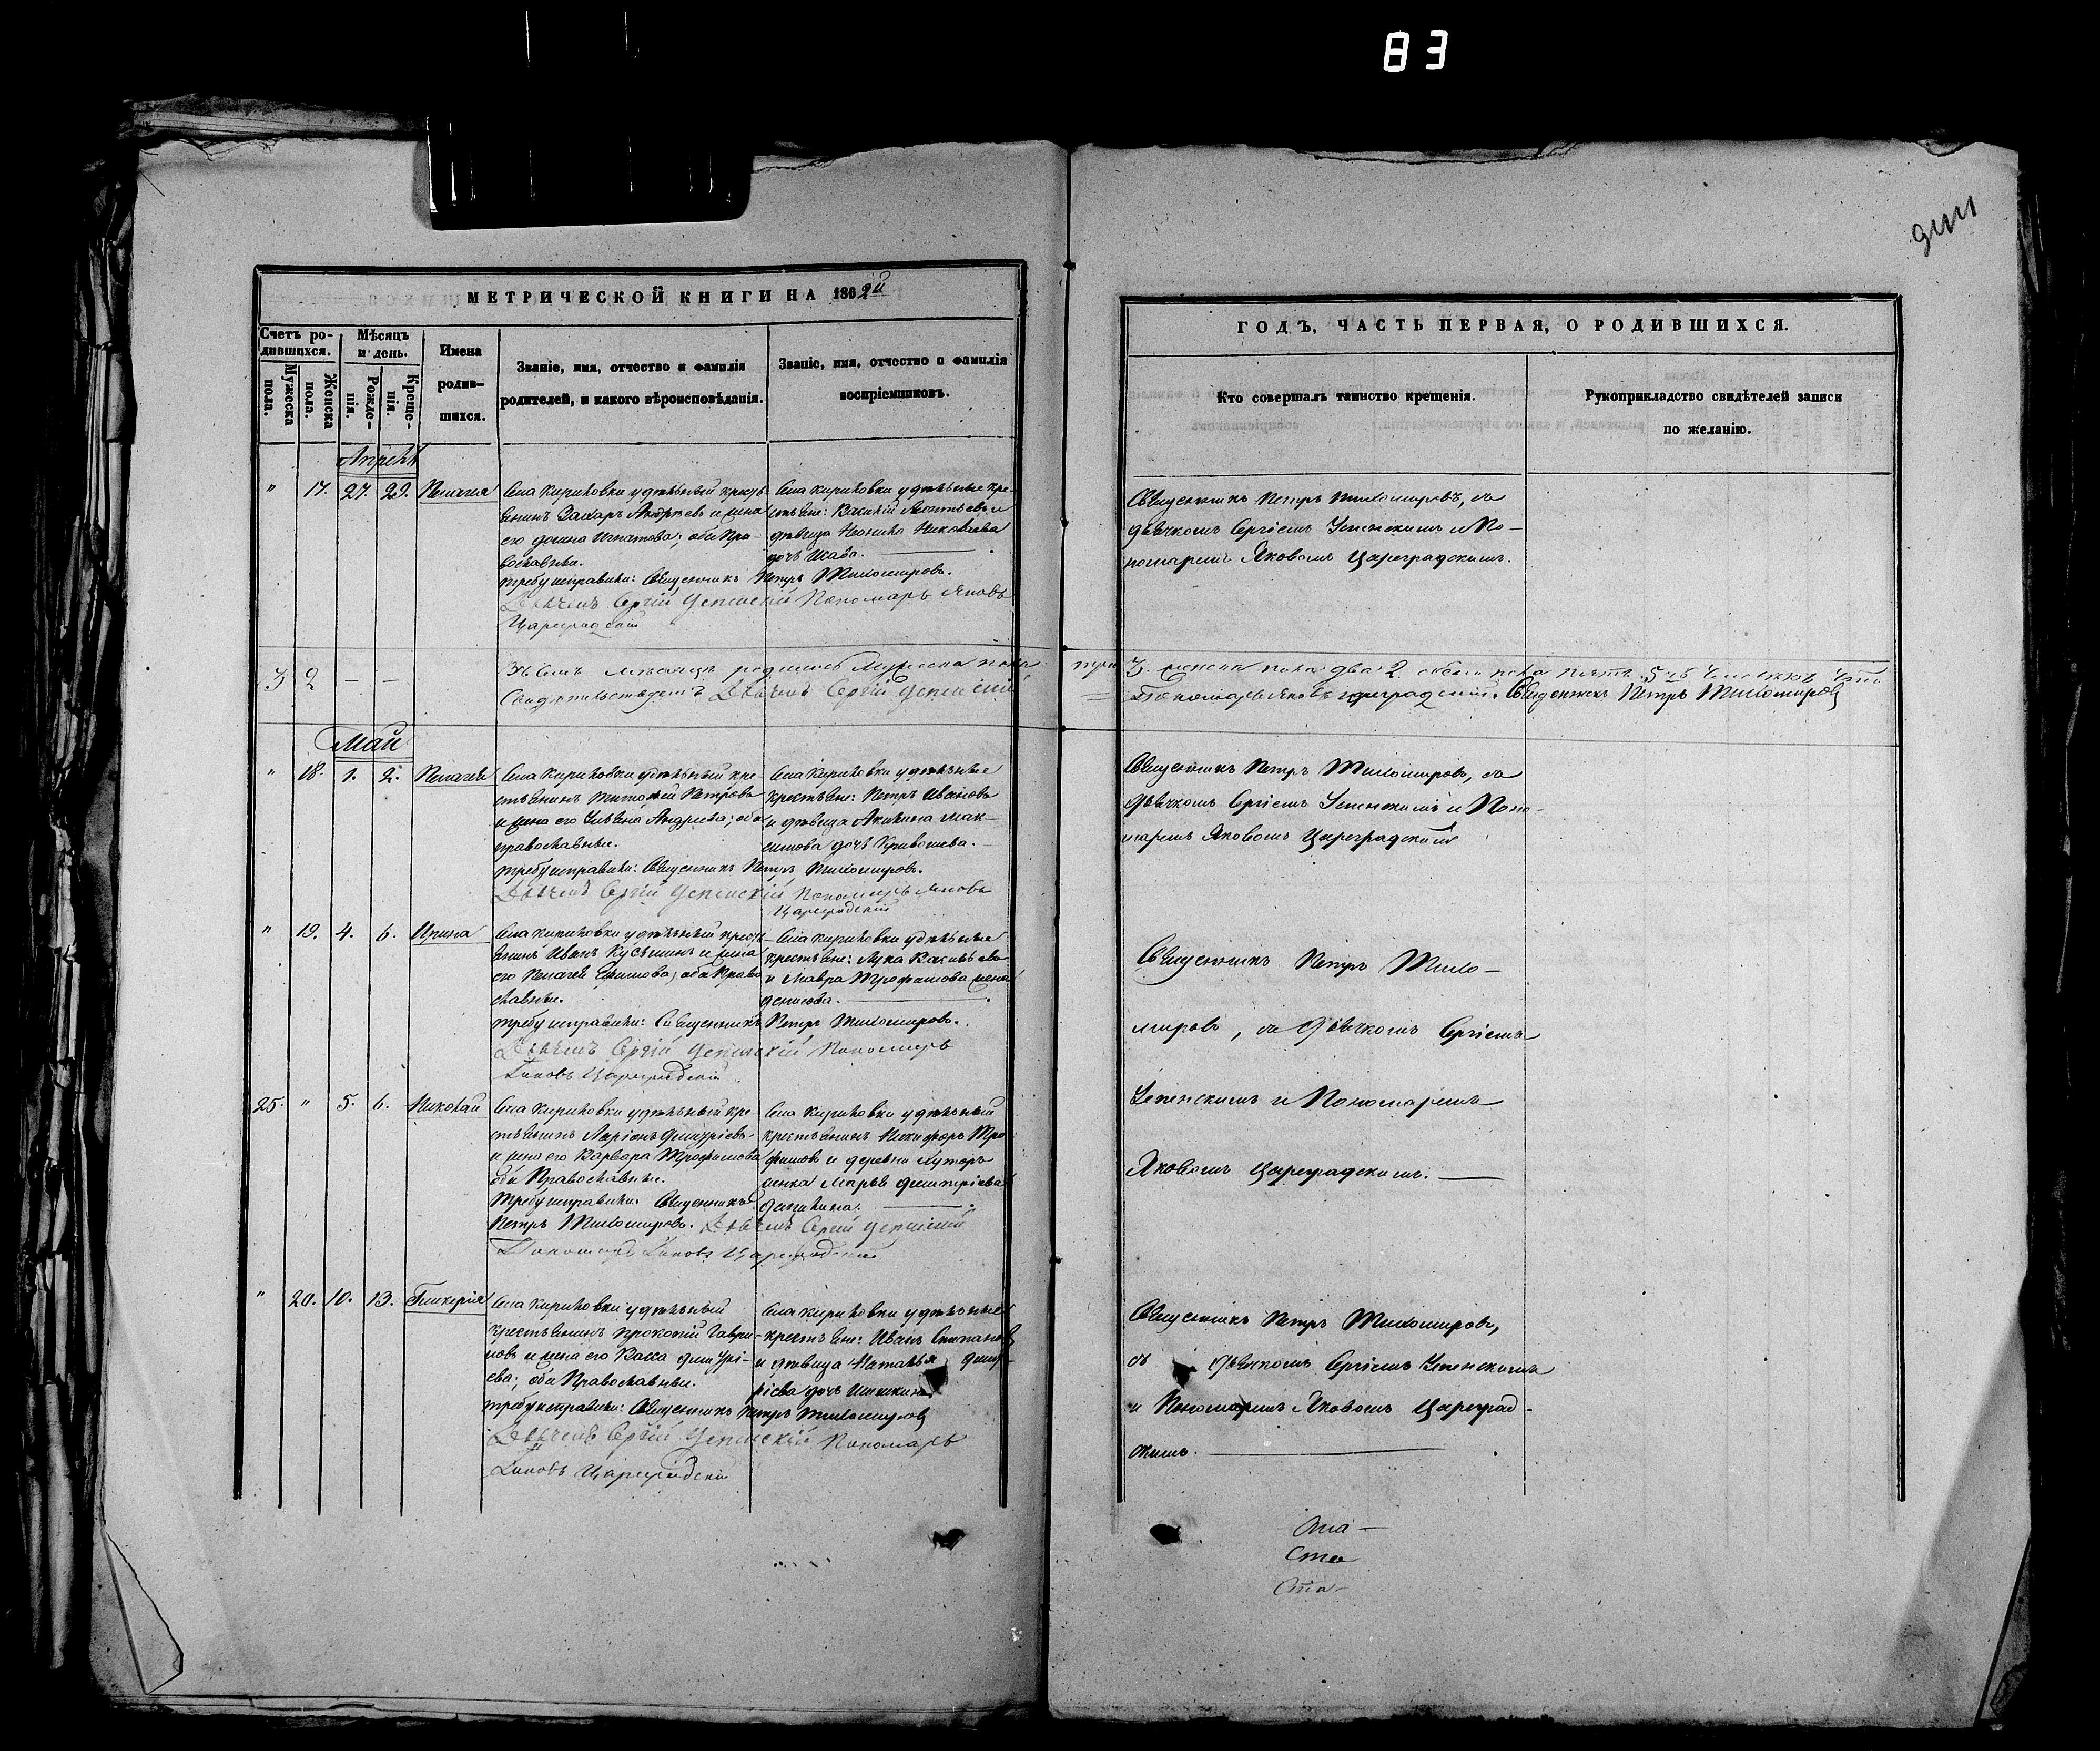 83
МЕТРИЧЕСКОЙ КНИГИ НА 1862й
Счетъ родившихся.
Мужеска пола.
Женска пола.
Мѣсяцъ и день.
Рожденія.
Крещенія.
Имена родившихся.
Званіе, имя, отчество и фамилія родителей, и какого вѣроисповѣданія.
Званіе, имя, отчество и фамилія воспріемниковъ.
Апрель
" 17. 27. 29. Пелагея
Села Кириловки удѣльный кресть-
янинъ Захаръ Андреевъ и жена
его Домна Игнатова; оба Пра-
вославные.
Села Кириловки удѣльные кре-
стьяне: Василій Леонтьевъ и
дѣвица Неонила Николаева
дочь
требу исправили: Священникъ Петръ Тихомировъ.
Дьячекъ Сергій Успенскій Пономарь Яковъ
Цареградскій
3 2 – –
Въ семъ мѣсяцѣ родилось Мужеска пола
Свидѣтельствуетъ Дьячекъ Сергій Успенскій
Май
" 18. 1. 2. Пелагея
Села Кириловки удѣльный кре-
стьянинъ Тимофей Петровъ
и жена его Ульяна Андреева; оба
православные.
Села Кириловки удѣльные
крестьяне: Петръ Ивановъ
и дѣвица Акилина Мак-
симова дочь Кривошева.
требу исправили: Священникъ Петръ Тихомировъ.
Дьячекъ Сергій Успенскій Пономарь Яковъ
Цареградскій
" 19. 4. 6. Ирина
Села Кириловки удѣльный кресть-
янинъ Иванъ Кузьминъ и жена
его Пелагея Ефимова; оба Право
славные.
Села Кириловки удѣльные
крестьяне: Лука Васильевъ
и Мавра Трофимова жена
Денисова.
требу исправили: Священникъ Петръ Тихомировъ.
Дьячекъ Сергій Успенскій Пономарь
Яковъ Цареградскій
25. " 5. 6. Николай
Села Кириловки удѣльный кре-
стьянинъ Ларіонъ Дмитріевъ
и жена его Варвара Трофимова
оба Православные.
Села Кириловки удѣльный
крестьянинъ Никифоръ Тро
фимовъ и деревни Хуторъ
Марья Дмитріева
требу исправили: Священникъ
Петръ Тихомировъ. Дьячекъ Сергій Успенскій
Пономарь Яковъ Цареградскій
" 20. 10. 13. Гликерия
Села Кириловки удѣльный
крестьянинъ Прокопій Гаври-
ловъ и жена его Васса Дмитрі-
ева; оба Православные.
Села Кириловки удѣльные
крестьяне: Иванъ Степановъ
и дѣвица Наталья Дмит-
ріева дочь Шишкина
требу исправили: Священникъ Петръ Тихомировъ
Дьячекъ Сергій Успенскій Пономарь
Яковъ Цареградскій
ГОДЪ, ЧАСТЬ ПЕРВАЯ, О РОДИВШИХСЯ.
Кто совершалъ таинство крещенія.
Рукоприкладство свидѣтелей записи
по желанію.
Священникъ Петръ Тихомировъ, съ
дьячкомъ Сергіемъ Успенскимъ и По-
номаремъ Яковомъ Цареградскимъ.
три 3. женска пола два 2. обоего пола пять 5
Пономарь Яковъ Цареградскій. Священникъ Петръ Тихомировъ
Священникъ Петръ Тихомировъ, съ
дьячкомъ Сергіемъ Успенскимъ и Поно-
маремъ Яковомъ Цареградскимъ
Священникъ Петръ Тихо-
мировъ, съ дьячкомъ Сергіемъ
Успенскимъ и Пономаремъ
Яковомъ Цареградскимъ.
Священникъ Петръ Тихомировъ,
съ дьячкомъ Сергіемъ Успенскимъ
и Пономаремъ Яковомъ Цареград-
скимъ.